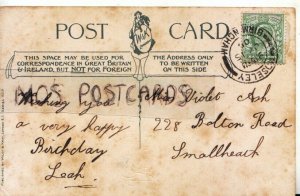 POST CARD
THIS SPACE MAY BE USED FOR
CORRESPONDENCE IN GREAT BRITAIN
& IRELAND, BUT NOT FOR FOREIGN
THE ADDRESS ONLY
TO BE WRITTEN
ON THIS SIDE
MOS POSTCARDS
Wishing you
a very happy
Birthday
Leah.
Miss Violet Ash
228 Bolton Road
Smallheath